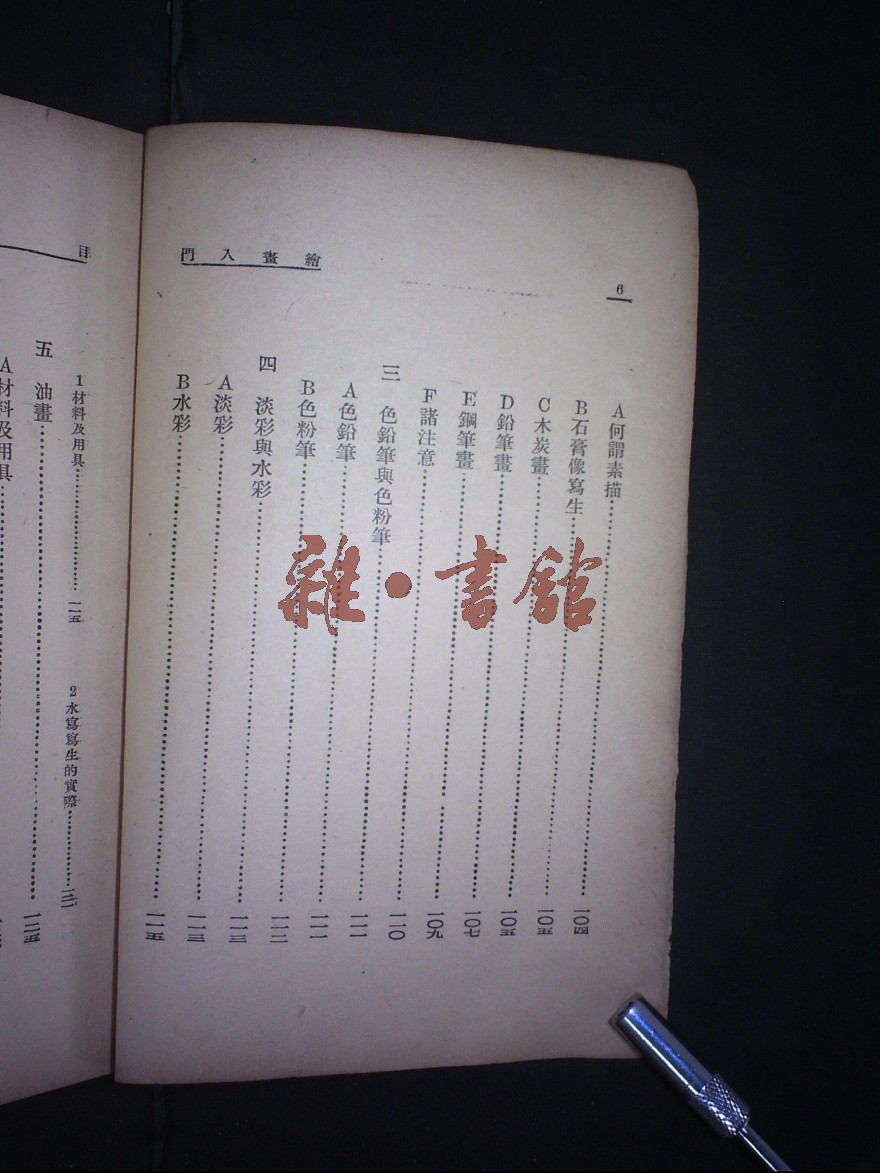 繪畫入門
6
A何謂素描……一〇四
B石膏像寫生……一〇五
C木炭畫……一〇五
D鉛筆畫……一〇七
E鋼筆畫……一〇九
F諸注意……一一〇
三 色鉛筆與色粉筆……一一一
A色鉛筆……一一一
B色粉筆……一一二
四 淡彩與水彩……一一三
A淡彩……一一三
B水彩……一一五
目
1材料及用具……一一五 2水寫寫生的實際……
五 油畫……一二五
A材料及用具……
雜·書館